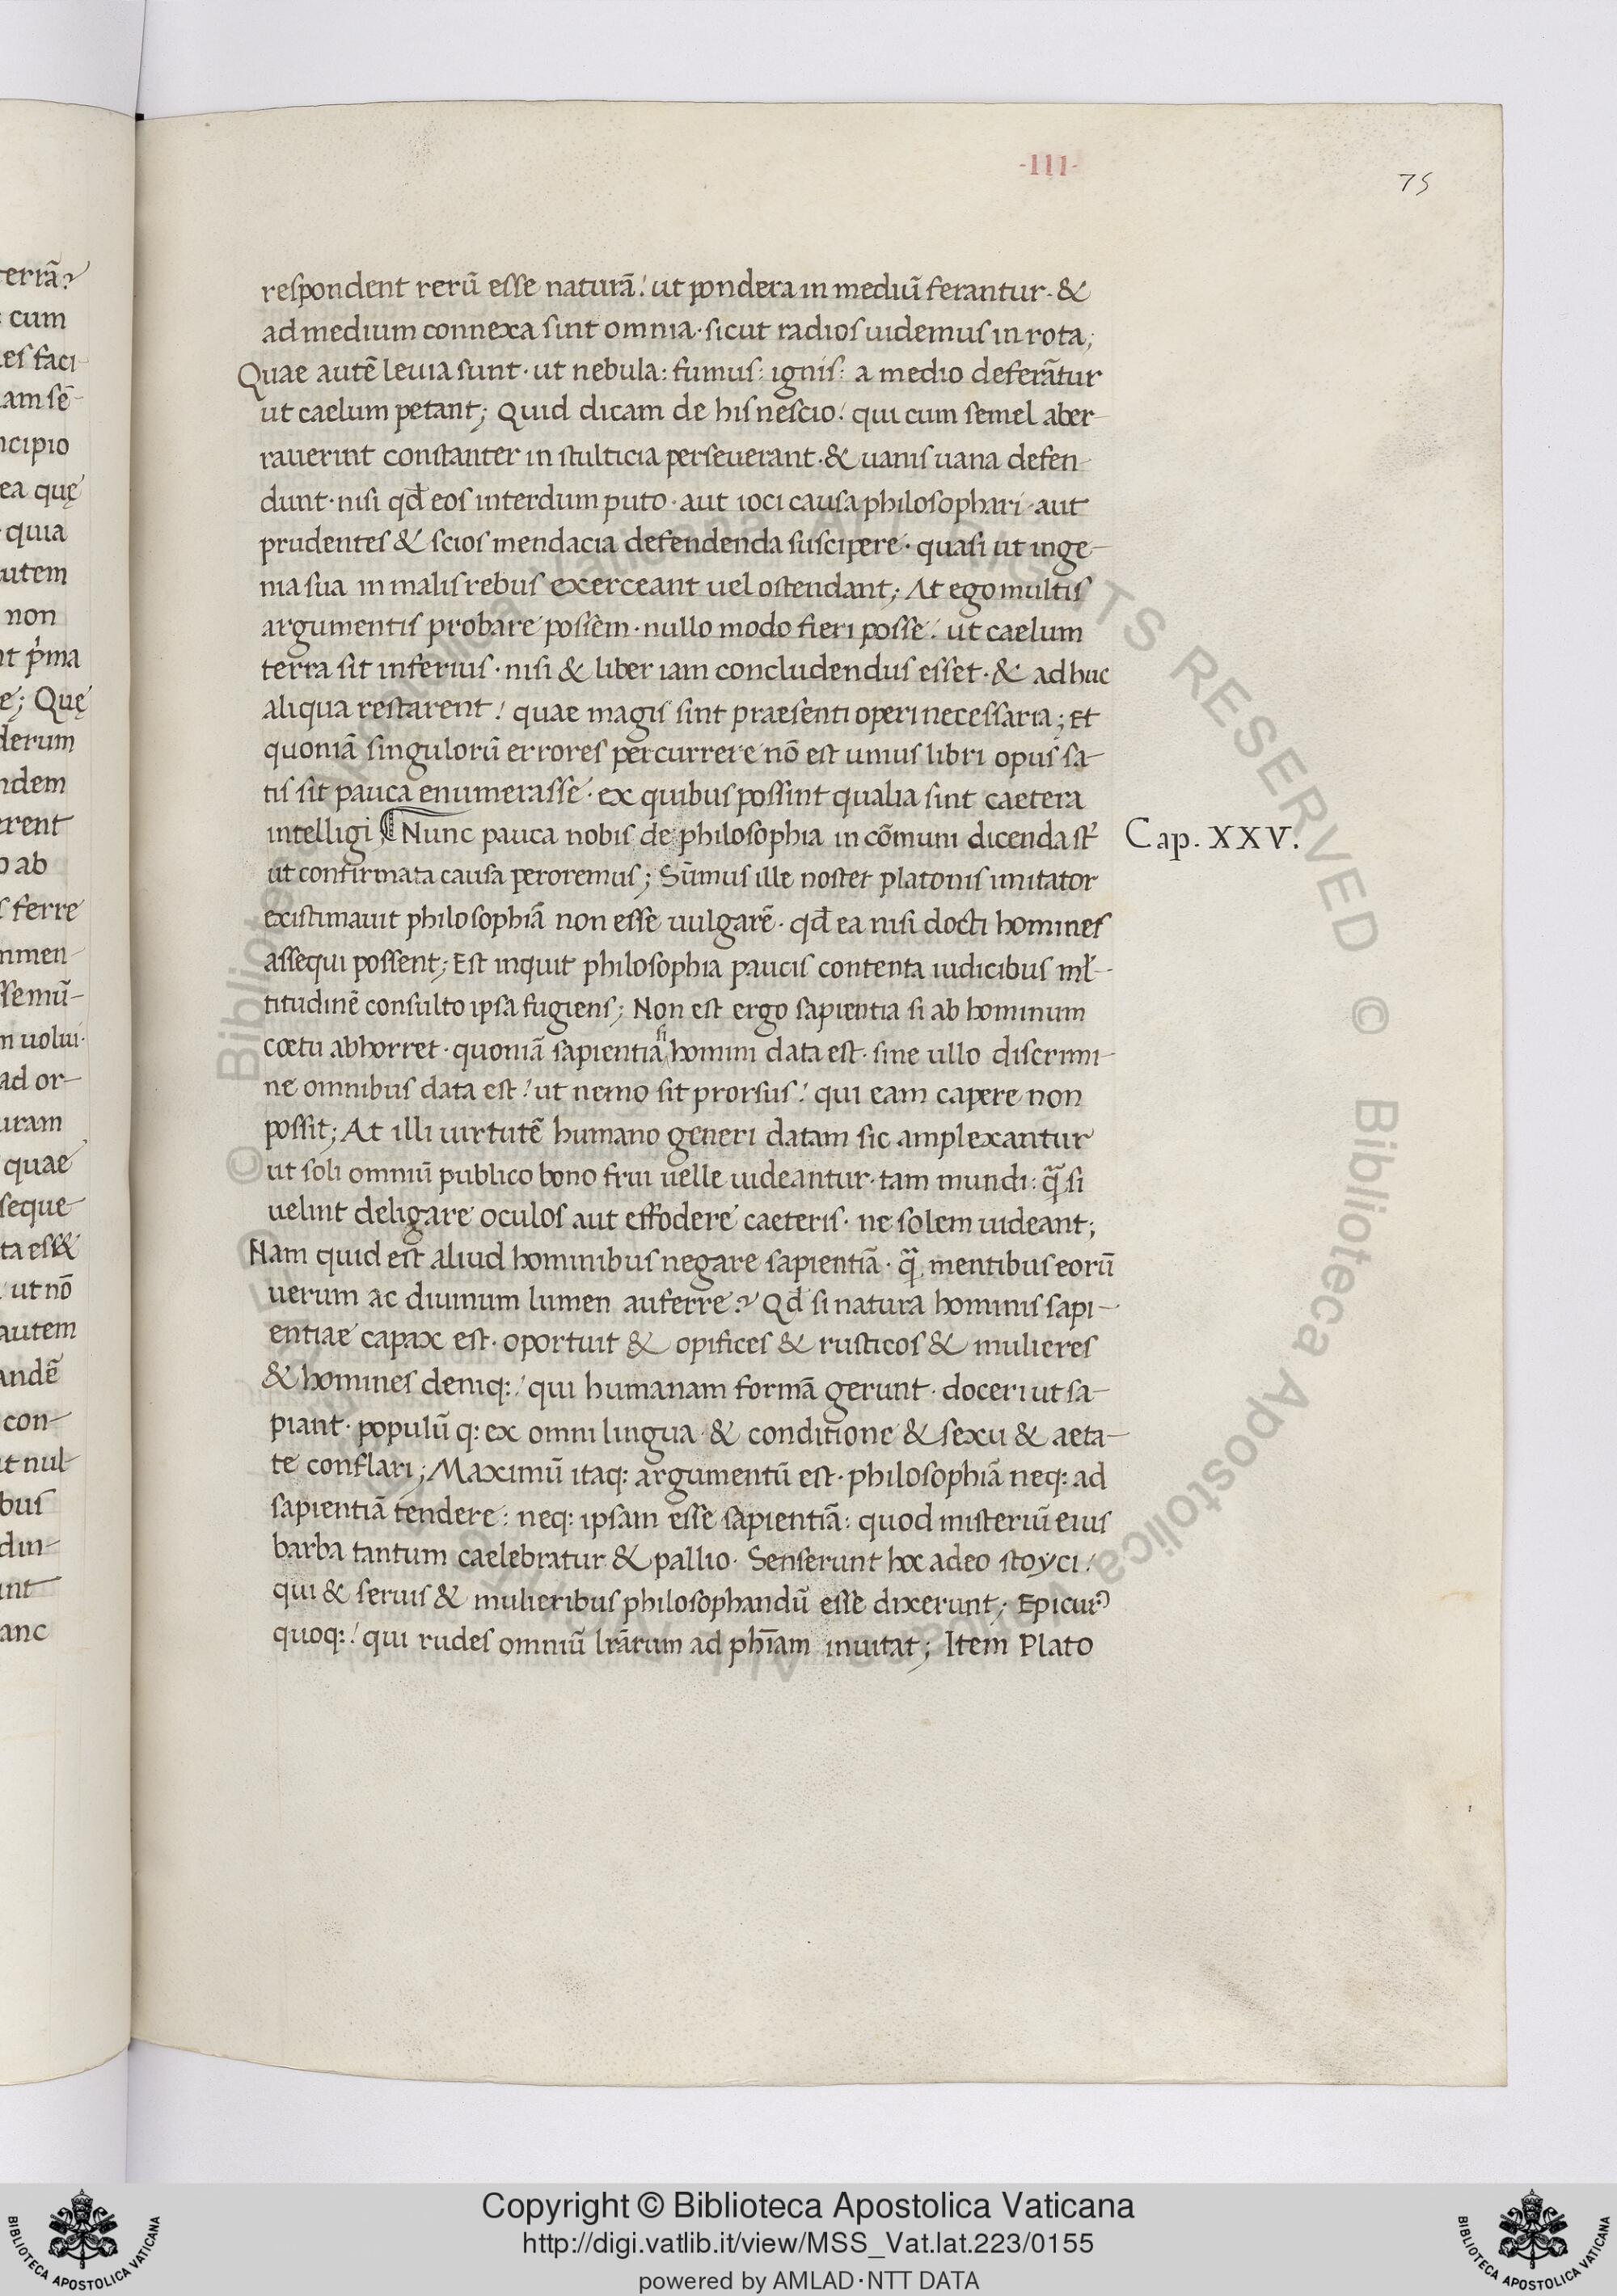 -III-
75
respondent rerū esse naturā! ut pondera in mediū ferantur. &
ad medium connexa sint omnia. sicut radios uidemus in rota;
Quae autē leuia sunt. ut nebula: fumus: ignis: a medio deferātur
ut caelum petant; Quid dicam de his nescio! qui cum semel aber-
rauerint constanter in stulticia perseuerant. & uanis uana defen-
dunt. nisi qđ eos interdum puto. aut ioci causa philosophari. aut
prudentes & scios mendacia defendenda suscipere. quasi ut inge-
nia sua in malis rebus exerceant uel ostendant; At ego multis
argumentis probare possem. nullo modo fieri posse! ut caelum
terra sit inferius. nisi & liber iam concludendus esset. & adhuc
aliqua restarent! quae magis sint praesenti operi necessaria; Et
quoniā singulorū errores percurrere nō est unius libri opus sa-
tis sit pauca enumerasse. ex quibus possint qualia sint caetera
intelligi ¶ Nunc pauca nobis de philosophia in cōmuni dicenda st̄
Cap. XXV.
ut confirmata causa peroremus; Sūmus ille noster platonis imitator
existimauit philosophiā non esse uulgarē. qđ ea nisi docti homines
assequi possent; Est inquit philosophia paucis contenta iudicibus ml̄-
titudinē consulto ipsa fugiens; Non est ergo sapientia si ab hominum
coetu abhorret. quoniā sapientia si homini data est. sine ullo discrimi-
ne omnibus data est! ut nemo sit prorsus! qui eam capere non
possit; At illi uirtutē humano generi datam sic amplexantur
ut soli omniū publico bono frui uelle uideantur. tam inuidi: q̄ si
uelint deligare oculos aut effodere caeteris. ne solem uideant;
Nam quid est aliud hominibus negare sapientiā. q̄ mentibus eorū
uerum ac diuinum lumen auferre? Qđ si natura hominis sapi-
entiae capax est. oportuit & opifices & rusticos & mulieres
& homines deniq:! qui humanam formā gerunt. doceri ut sa-
piant. populū q: ex omni lingua & conditione & sexu & aeta-
te conflari; Maximū itaq: argumentū est. philosophiā neq: ad
sapientiā tendere: neq: ipsam esse sapientiā: quod misteriū eius
barba tantum caelebratur & pallio. Senserunt hoc adeo stoyci!
qui & seruis & mulieribus philosophandū esse dixerunt; Epicurꝰ
quoq:! qui rudes omniū lrārum ad ph̄iam inuitat; Item Plato
Copyright © Biblioteca Apostolica Vaticana
http://digi.vatlib.it/view/MSS_Vat.lat.223/0155
powered by AMLAD·NTT DATA